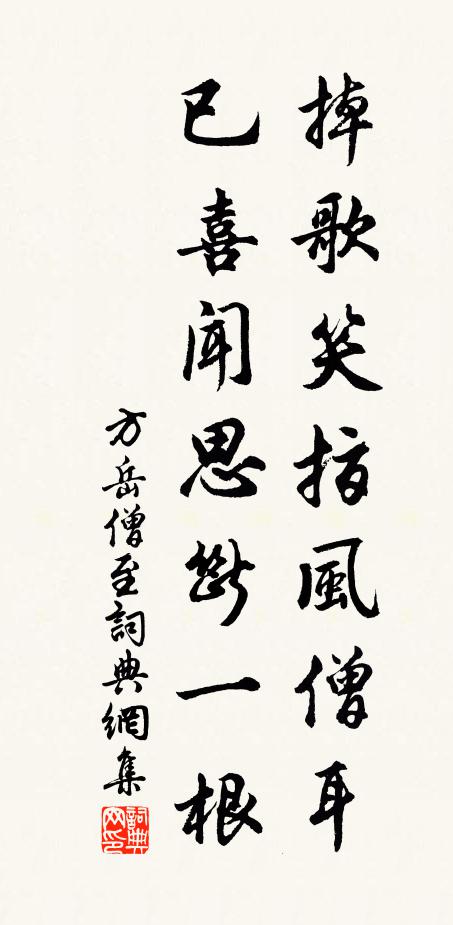 掉歌笑指風僧耳
已喜聞思斷一根
方岳僧至詞典網集
詞典網印